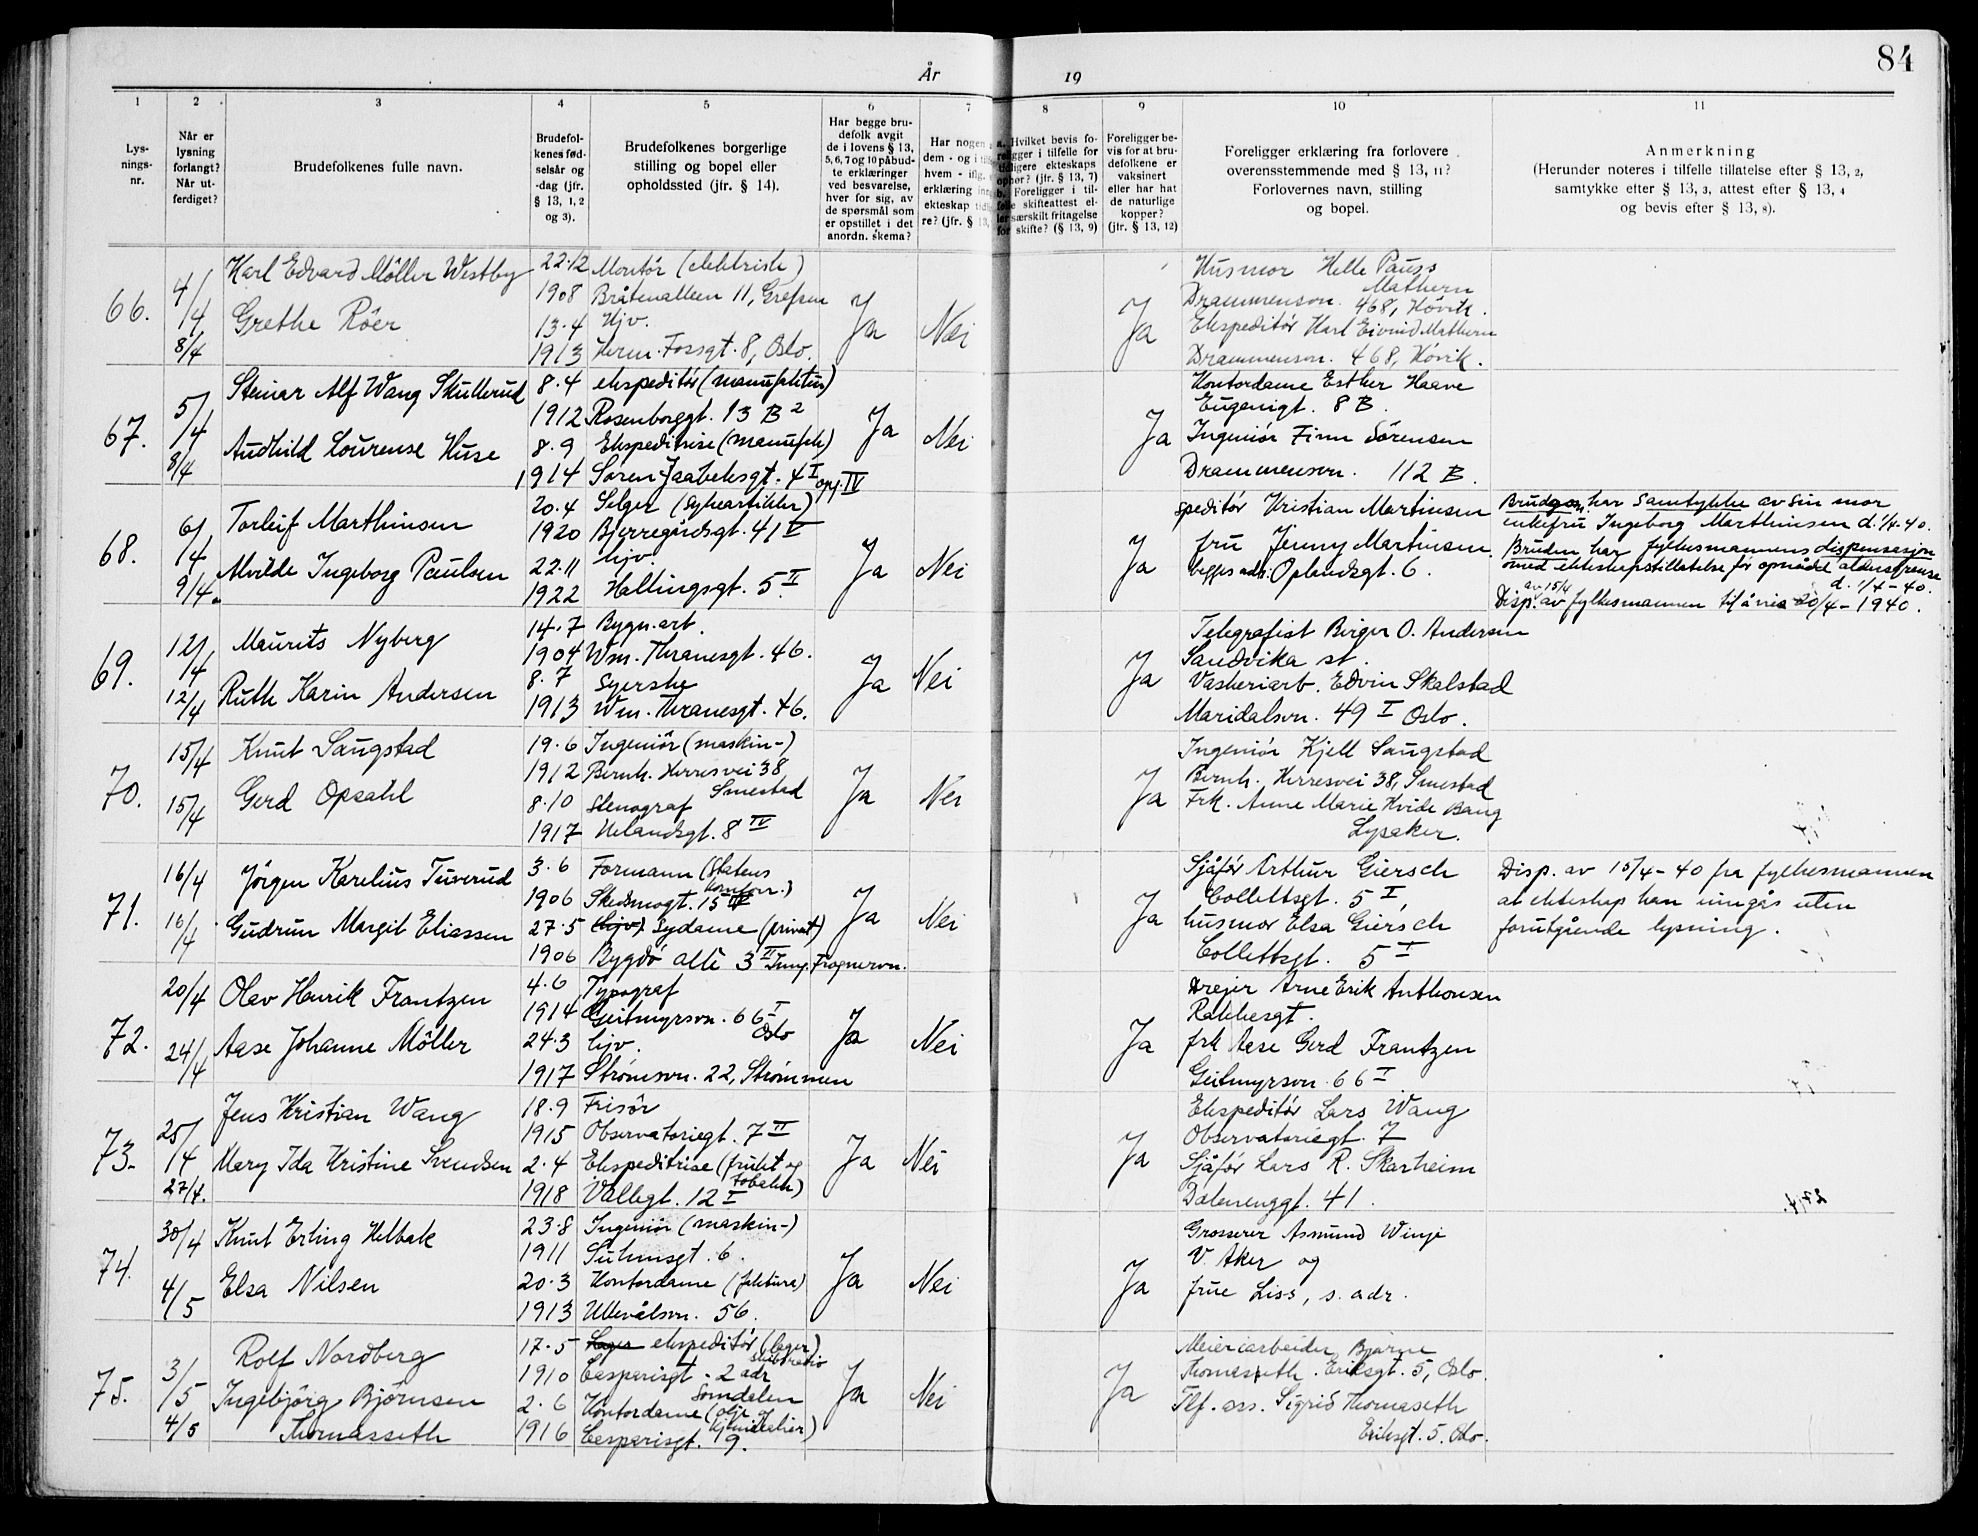 84
År 19
1 2 3 4 5 6 7 8 9 10 11
Lys-
nings-
nr.
Når er
lysning
forlangt?
Når ut-
ferdiget?
Brudefolkenes fulle navn.
Brudefol-
kenes fød-
selsår og
-dag (jfr.
§ 13, 1, 2
og 3).
Brudefolkenes borgerlige
stilling og bopel eller
opholdssted (jfr. § 14).
Har begge bru-
defolk avgit
de i lovens § 13,
5, 6, 7 og 10 påbud-
te erklæringer
ved besvarelse,
hver for sig, av
de spørsmål som
er opstillet i det
anordn. skema?
Har nogen
dem - og i
hvem - iflg.
erklæring
ekteskap
re? (jfr. § 13,
Hvilket bevis fo-
religger i tilfelle for
tidligere ekteskaps
ophør? (jfr. § 13, 7)
b. Foreligger i til-
felle skifteattest el-
ler særskilt fritagelse
for skifte? (§ 13, 9)
Foreligger be-
vis for at bru-
defolkene er
vaksinert
eller har hat
de naturlige
kopper?
(jfr. § 13, 12)
Foreligger erklæring fra forlovere
overensstemmende med § 13, 11?
Forlovernes navn, stilling
og bopel.
Anmerkning
(Herunder noteres i tilfelle tillatelse efter § 13, 2,
samtykke efter § 13, 3, attest efter § 13, 4
og bevis efter § 13, 8).
66.
4/4
8/4
Karl Edvard Möller Westby
Grethe Röer
22.12
1908
13.4
1913
Montör (elektrisk)
Bråtenalleen 11, Grefsen
Hjv.
Herm. Fossgt. 8, Oslo.
Ja
Nei
Ja
Husmor Helle Pauss
Mathern
Drammensvn. 468, Hövik.
Ekspeditör Karl Eivind Mathern
Drammensvn. 468, Hövik.
67.
5/4
8/4
Steinar Alf Wang Skullerud
Audhild Lourense Huse
8.4
1912
8.9
1914
ekspeditör (manufaktur)
Rosenborggt. 13 B 2
Ekspeditrise (manufak)
Sören Jaabeksgt. 4 I opg. IV
Ja
Nei
Ja
Kontordame Esther Haave
Eugenigt. 8 B.
Ingeniör Finn Sörensen
Drammensvn. 112 B.
68.
6/4
9/4.
Torleif Marthinsen
Alvilde Ingeborg Paulsen
20.4
1920
22.11
1922
Selger (syeartikler)
Bjerregårdsgt. 41 V
hjv.
Hallingsgt. 5 II.
Ja
Nei
Ja
speditör Kristian Martinsen
fru Jenny Martinsen,
begges adr. Oplandsgt. 6.
Brudgom, har samtykke av sin mor
enkefru Ingeborg Marthinsen d. 1/4-40.
Bruden har fylkesmannens dispensasjon
med ekteskapstillatelse för opnådd aldersgrense
d. 1/4-40.
av 15/4
Disp. av fylkesmannen til å vie 20/4-1940.
69.
12/4
12/4
Maurits Nyberg
Ruth Karin Andersen
14.7
1904
8.7
1913
Bygn.arb.
Wm. Thranesgt. 46.
Syerske
Wm. Thranesgt. 46.
Ja
Nei
Ja
Telegrafist Birger O. Andersen
Sandvika st.
Vaskeriarb. Edvin Skalstad
Maridalsvn. 49 I Oslo.
70.
15/4
15/4
Knut Saugstad
Gerd Opsahl
19.6
1912
8.10
1917
Ingeniör (maskin-)
Bernh. Herresvei 38
Smestad
Stenograf
Uelandsgt. 8 IV
Ja
Nei
Ja
Ingeniör Kjell Saugstad
Bernh. Herresvei 38, Smestad
Frk. Anne Marie Hvide Bang
Lysaker.
71.
16/4
16/4
Jörgen Karelius Tuverud
Gudrun Margit Eliassen
3.6
1906
27.5
1906
Formann (Statens
kornforr.)
Skedsmogt. 15
(hjv.) Sydame (privat)
Bygdö allé 3 II Inng. Frognervn.
Ja
Nei
Ja
Sjåför Arthur Giersch
Collettsgt. 5 I,
husmor Elsa Giersch
Collettsgt. 5 I
Disp. av 15/4-40 fra fylkesmannen
at ekteskap kan inngås uten
forutgående lysning.
72.
20/4
24/4
Olav Henrik Frantzen
Aase Johanne Möller
4.6
1914
24.3
1917
Typograf
Geitmyrsvn. 66 I
Oslo
hjv.
Strömsvn. 22, Strömmen
Ja
Nei
Ja
Dreier Arne Erik Anthonsen
Rakkesgt.
frk Aase Gerd Frantzen
Geitmyrsvn. 66 I
73.
25/4
27/4.
Jens Kristian Wang
Mary Ida Kristine Svendsen
18.9
1915
2.4
1918
Frisör
Observatoriegt. 7 II
Ekspeditrise (frukt og
tobakk)
Vallegt. 12 I
Ja
Nei
Ja
Ekspeditör Lars Wang
Observatoriegt. 7
Sjåför Lars R. Skarheim
Dælenenggt. 41.
74.
30/4
4/5
Knut Erling Helbak
Elsa Nilsen
23.8
1911
20.3
1913
Ingeniör (maskin-)
Suhmsgt. 6.
Kontordame (faktura)
Ullevålsvn. 56.
Ja
Nei
Ja
Grosserer Asmund Winje
V. Aker og
frue Liss, s. adr.
75.
3/5
4/5
Rolf Nordberg
Ingebjörg Björnsen
Thomasseth
17.5
1910
2.6
1916
Lager ekspeditör (lager)
Casparisgt. 2 adr
Somdalen
Kontordame (olje og
kjemikalier)
Casparisgt. 9.
Ja
Nei
Ja
Meieriarbeider Bjarne
Thomasseth. Eriksgt. 5, Oslo.
Tlf. ass. Sigrid Thomaseth
Eriksgt. 5. Oslo.